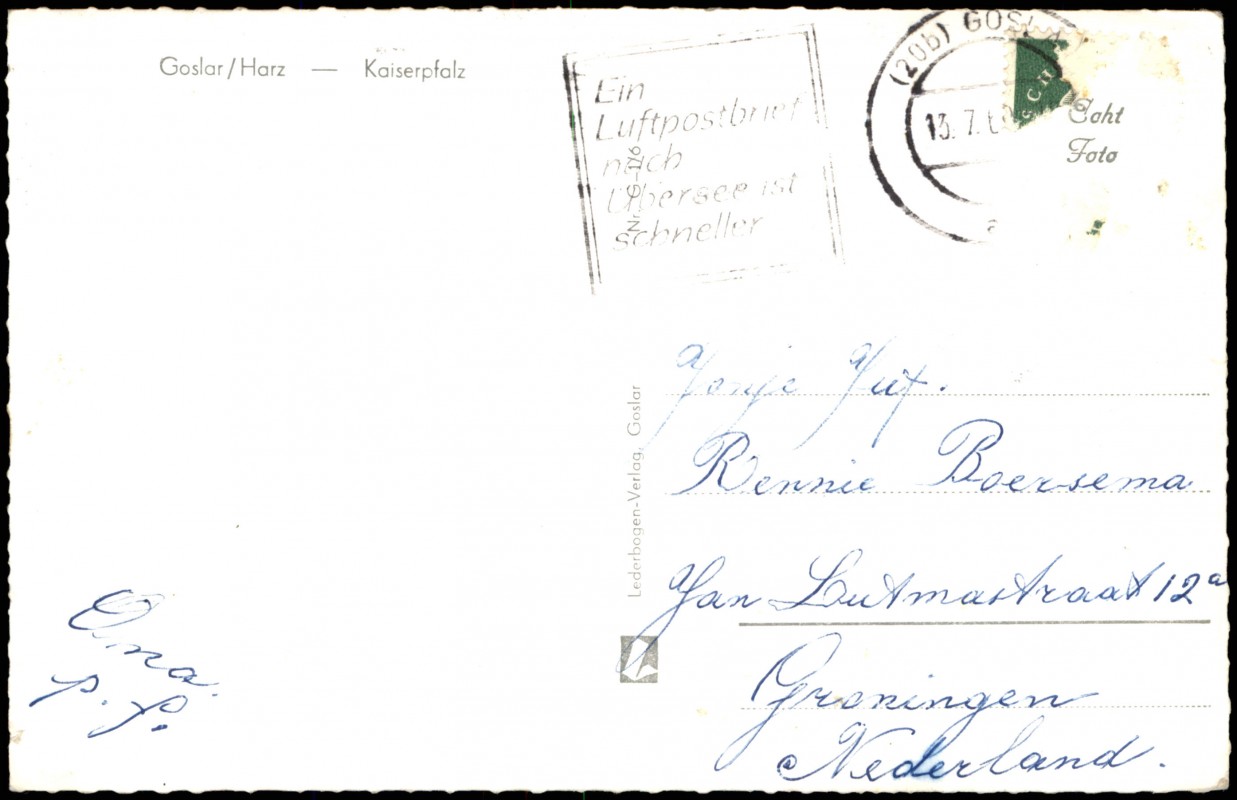 Goslar/Harz — Kaiserpfalz
Ein
Luftpostbrief
nach
Übersee ist
schneller
(20b) GOSL
13.7.6
Echt
Foto
Lederbogen-Verlag, Goslar
Jonje Jut.
Rennie Boersema
Jan Lutmastraat 12a
Groningen
Nederland.
Oma.
p. f.